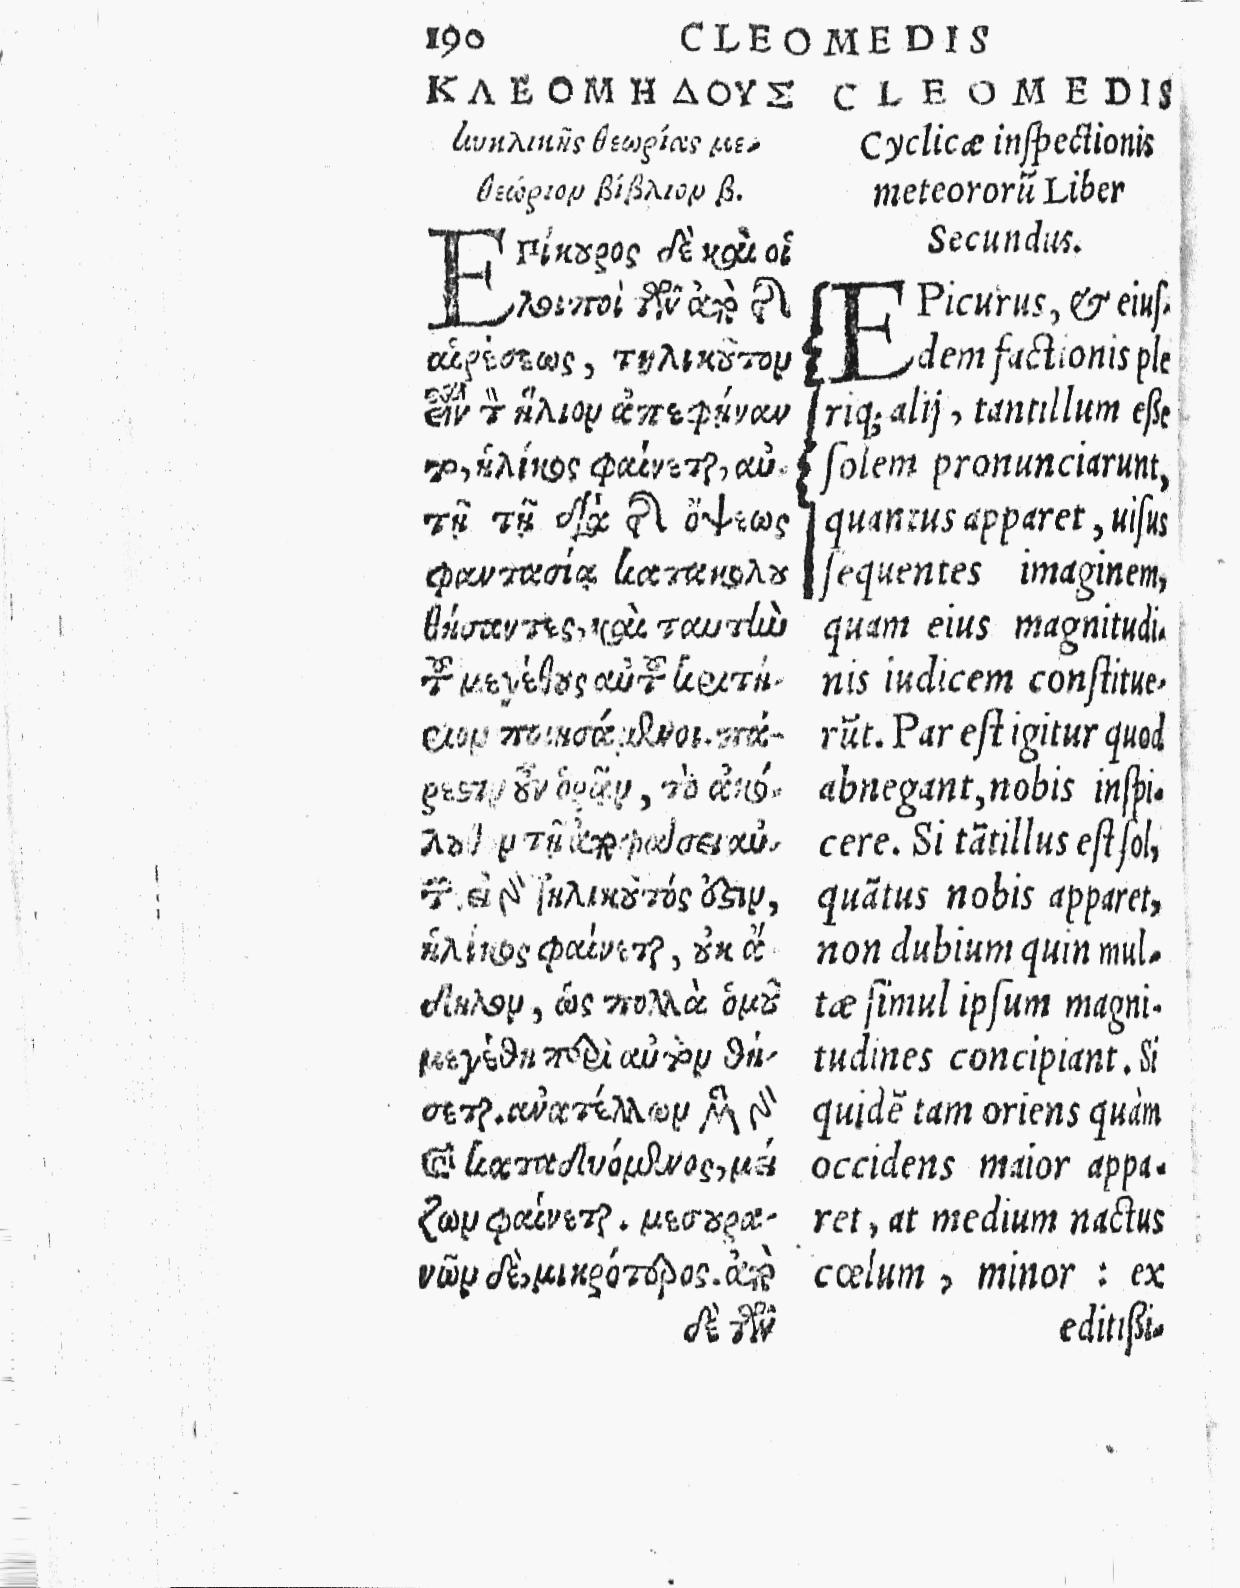 190 CLEOMEDIS
ΚΛΕΟΜΗΔΟΥΣ
κυκλικῆς θεωρίας με-
θεώριον βίβλιον β.
ΕΠίκουρος δὲ καὶ οἱ
λοιποὶ τῶν ἀπὸ τῆς
αἱρέσεως, τηλικοῦτον
εἶναι τὸν ἥλιον ἀπεφήναν
το, ἡλίκος φαίνεται, αὐ-
τῇ τῇ διὰ τῆς ὄψεως
φαντασίᾳ κατακολου
θήσαντες, καὶ ταυτὴν
τοῦ μεγέθους αὐτοῦ κριτή-
ριον ποιησάμενοι. πά-
ρεστιν οὖν ὁρᾷν, τὸ ἀκό-
λουθον τῇ ἀποφάσει αὐ-
τοῦ. εἰ γὰρ τηλικοῦτός ὅστιν,
ἡλίκος φαίνεται, οὐκ ἄ-
δηλον, ὡς πολλὰ ὁμοῦ
μεγέθη περὶ αὐτὸν θή-
σεται. ἀνατέλλων μὲν γὰρ
καὶ καταδυόμενος, μεί
ζων φαίνεται. μεσουρα-
νῶν δὲ, μικρότερος. ἀπὸ
δὲ τῶν
CLEOMEDIS
Cyclicæ inſpectionis
meteororũ Liber
Secundus.
EPicurus, & eiuſ-
dem factionis ple
riq; alij, tantillum eſſe
ſolem pronunciarunt,
quantus apparet, uiſus
ſequentes imaginem,
quam eius magnitudi-
nis iudicem conſtitue-
rũt. Par eſt igitur quod
abnegant, nobis inſpi-
cere. Si tãtillus eſt ſol,
quãtus nobis apparet,
non dubium quin mul-
tæ ſimul ipſum magni-
tudines concipiant. Si
quidẽ tam oriens quàm
occidens maior appa-
ret, at medium nactus
cœlum, minor: ex
editiſſi-